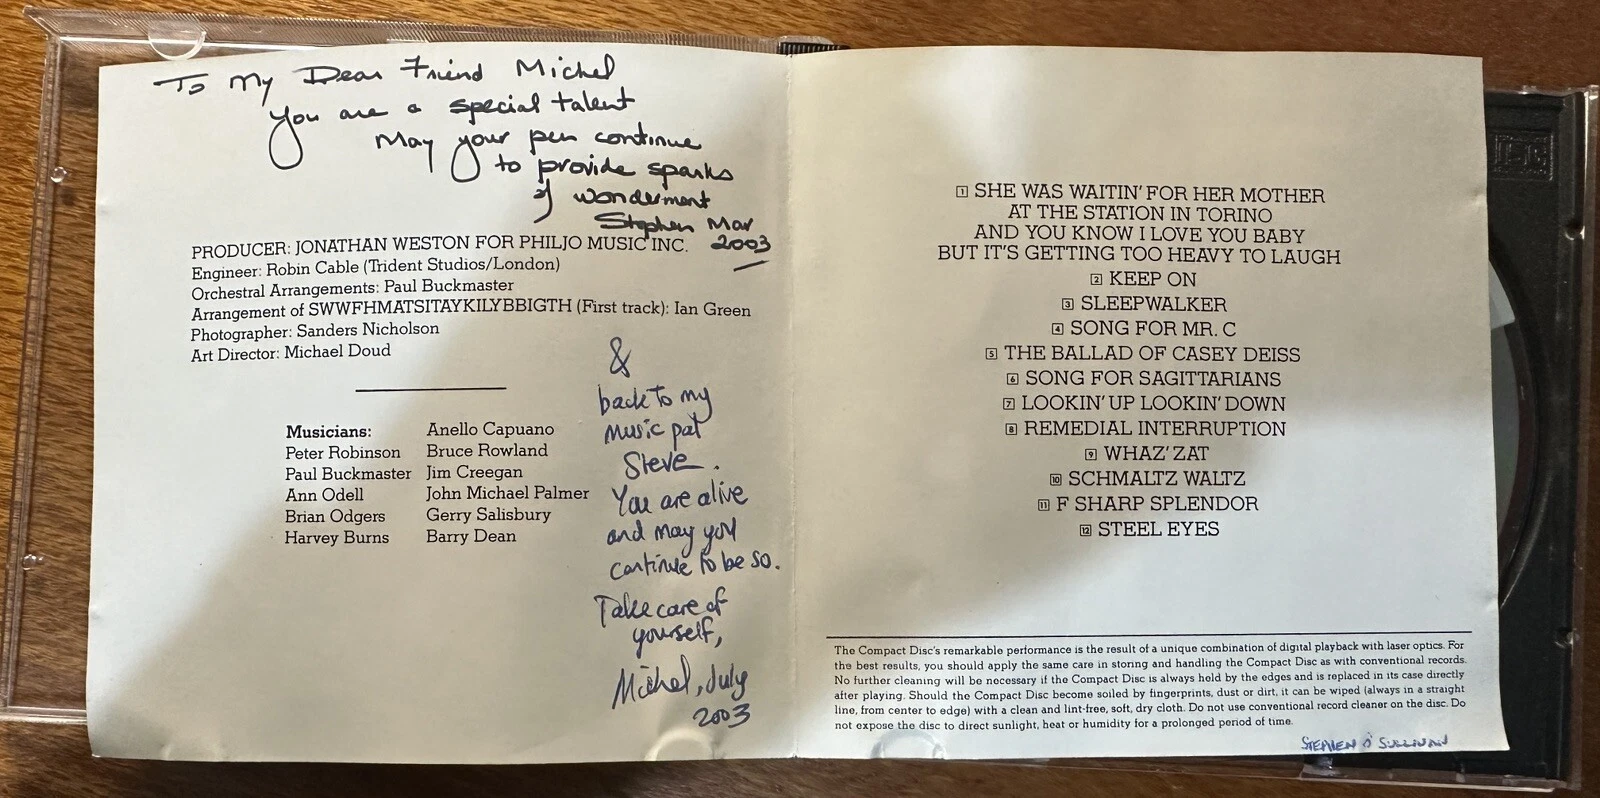 To My Dear Friend Michel
You are a special talent
May your pen continue
to provide sparks
of wonderment
Stephen Mar
2003
PRODUCER: JONATHAN WESTON FOR PHILJO MUSIC INC.
Engineer: Robin Cable (Trident Studios/London)
Orchestral Arrangements: Paul Buckmaster
Arrangement of SWWFHMATSITAYKILYBBIGTH (First track): Ian Green
Photographer: Sanders Nicholson
Art Director: Michael Doud
Musicians:
Peter Robinson
Paul Buckmaster
Ann Odell
Brian Odgers
Harvey Burns
Anello Capuano
Bruce Rowland
Jim Creegan
John Michael Palmer
Gerry Salisbury
Barry Dean
&
back to my
music pal
Steve.
You are alive
and may you
continue to be so.
Take care of
yourself,
Michel, July
2003
1 SHE WAS WAITIN' FOR HER MOTHER
AT THE STATION IN TORINO
AND YOU KNOW I LOVE YOU BABY
BUT IT'S GETTING TOO HEAVY TO LAUGH
2 KEEP ON
3 SLEEPWALKER
4 SONG FOR MR. C
5 THE BALLAD OF CASEY DEISS
6 SONG FOR SAGITTARIANS
7 LOOKIN' UP LOOKIN' DOWN
8 REMEDIAL INTERRUPTION
9 WHAZ' ZAT
10 SCHMALTZ WALTZ
11 F SHARP SPLENDOR
12 STEEL EYES
The Compact Disc's remarkable performance is the result of a unique combination of digital playback with laser optics. For
the best results, you should apply the same care in storing and handling the Compact Disc as with conventional records.
No further cleaning will be necessary if the Compact Disc is always held by the edges and is replaced in its case directly
after playing. Should the Compact Disc become soiled by fingerprints, dust or dirt, it can be wiped (always in a straight
line, from center to edge) with a clean and lint-free, soft, dry cloth. Do not use conventional record cleaner on the disc. Do
not expose the disc to direct sunlight, heat or humidity for a prolonged period of time.
STEPHEN O'SULLIVAN